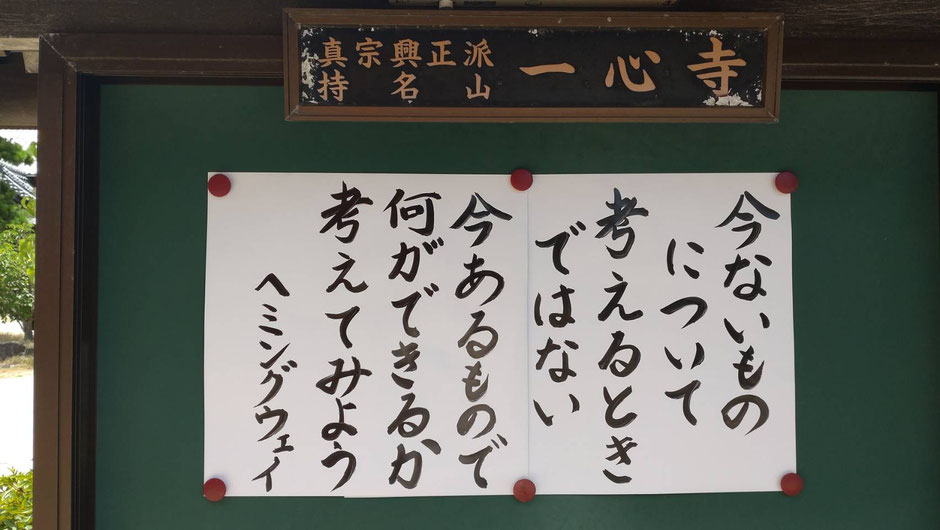 真宗興正派
持名山
一心寺
今ないもの
について
考えるとき
ではない
今あるもので
何ができるか
考えてみよう
ヘミングウェイ